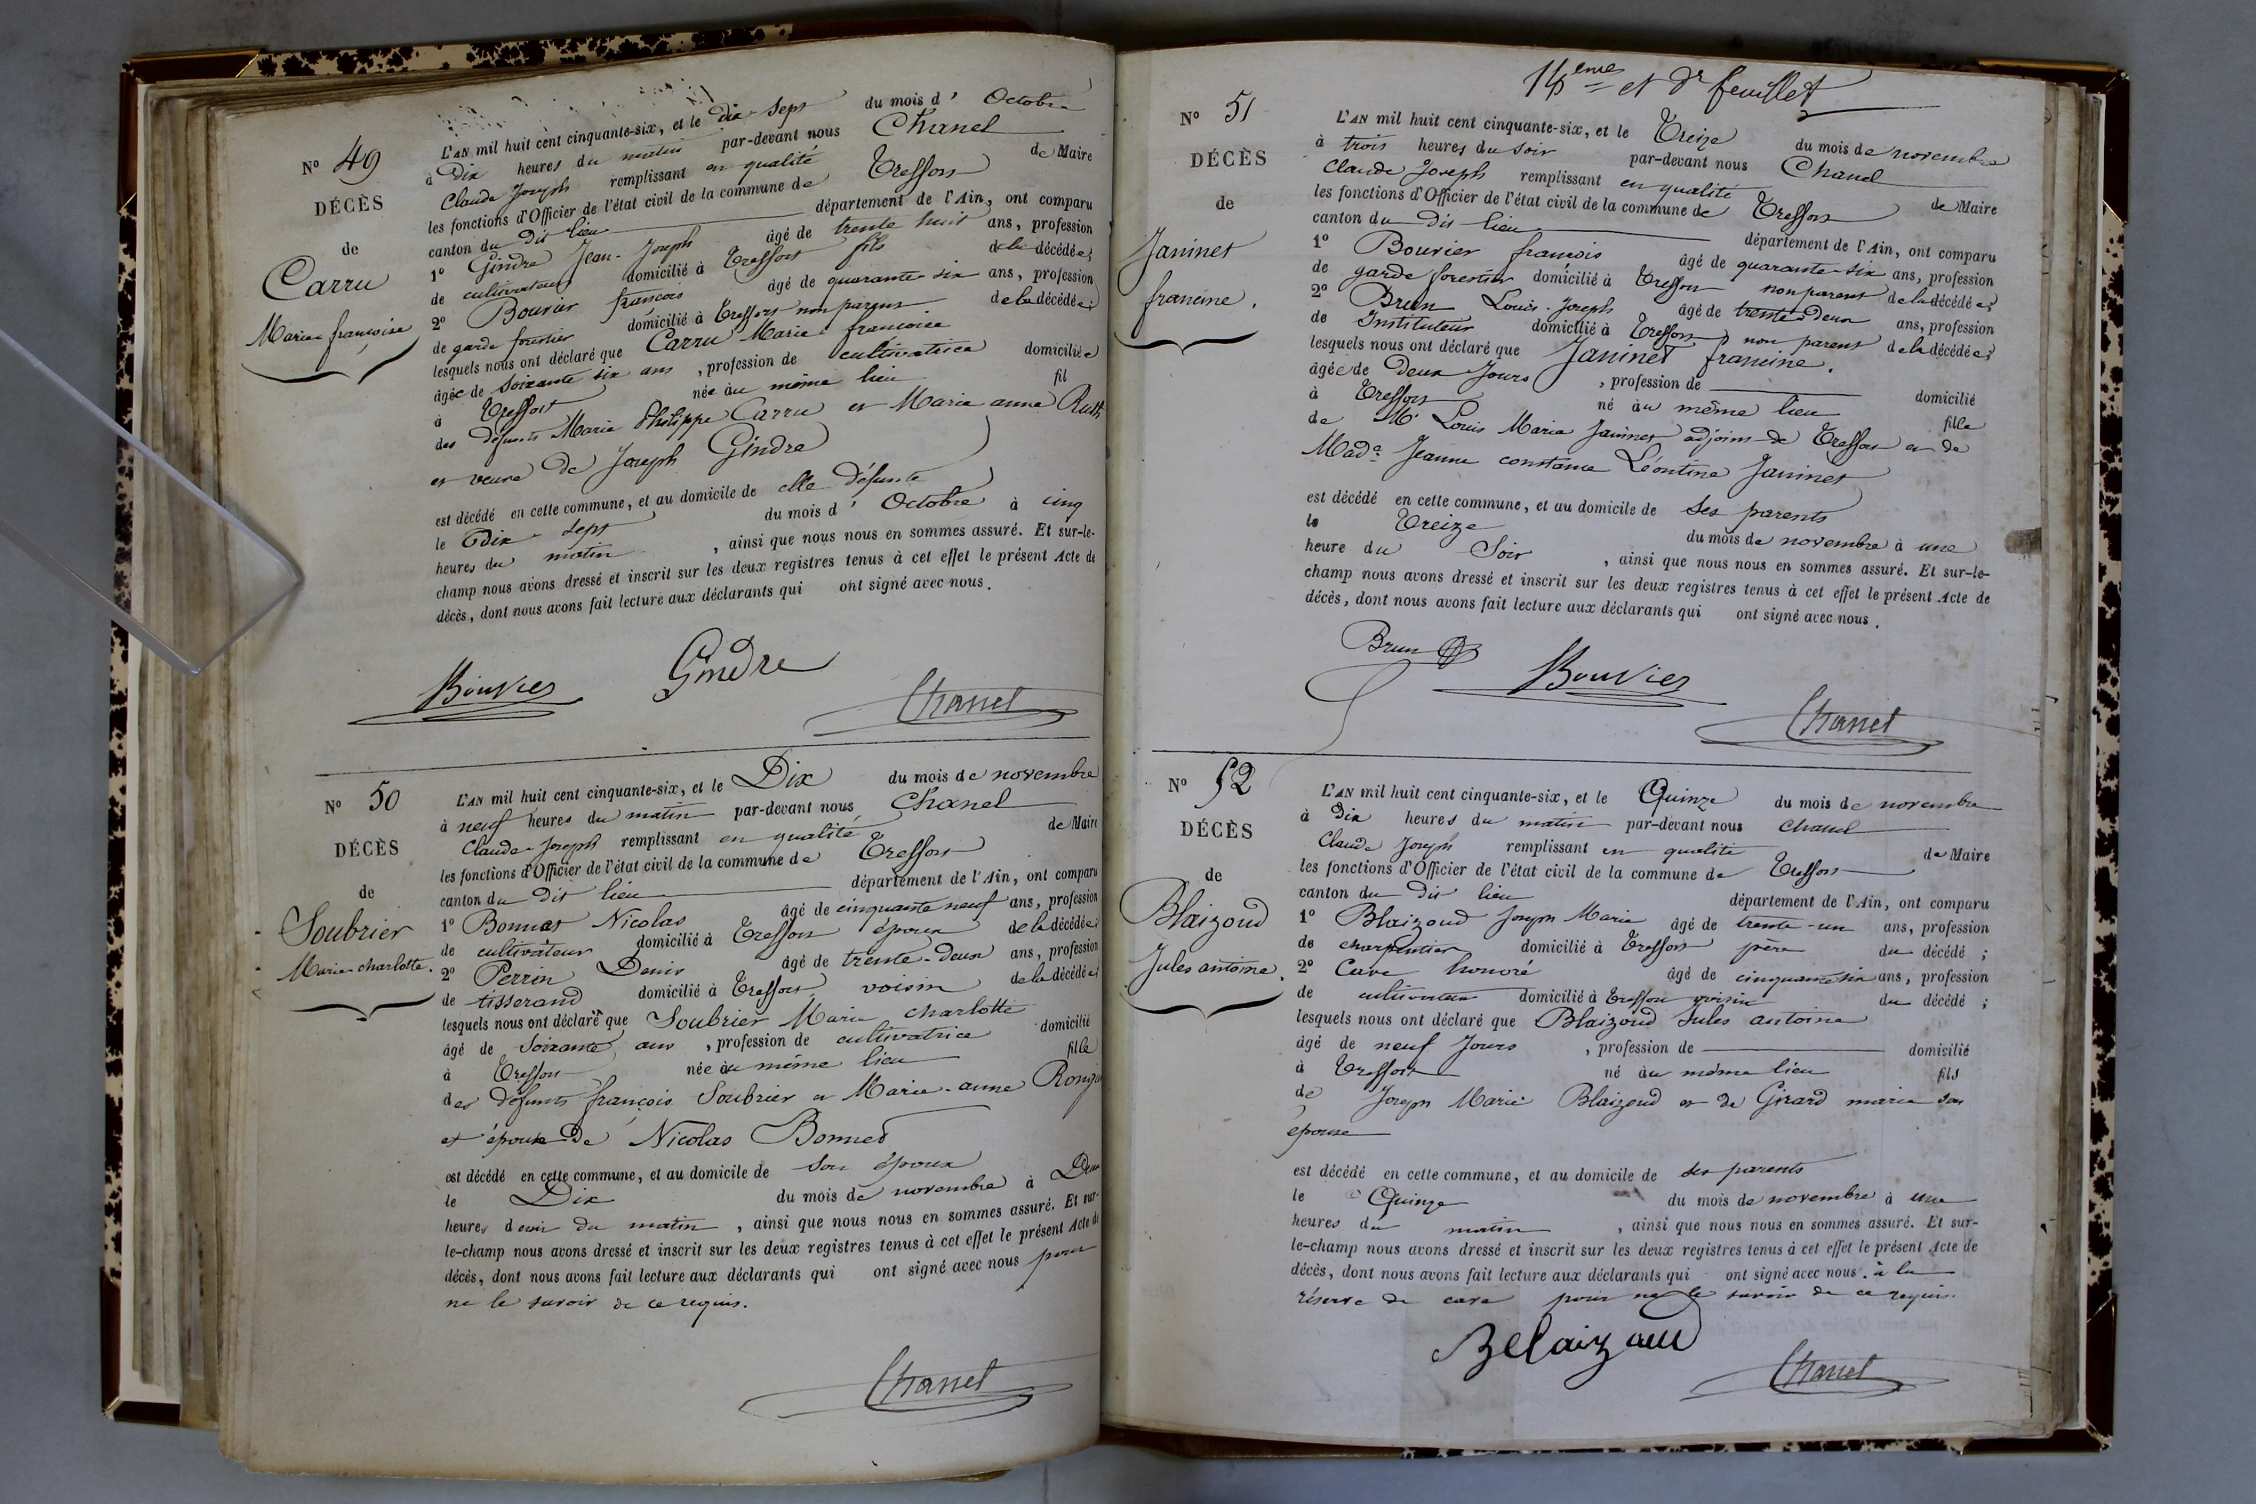 N° 49
DÉCÈS
de
Carru
Marie françoise
L'AN mil huit cent cinquante-six, et le dix Sept du mois d' Octobre
à Dix heures du matin par-devant nous Chanel
Claude Joseph remplissant en qualité de Maire
les fonctions d'Officier de l'état civil de la commune de Treffort
canton du dit lieu département de l'Ain, ont comparu
1° Gindre Jean-Joseph âgé de trente huit ans, profession
de cultivateur domicilié à Treffort fils de la décédée;
2° Bouvier françois âgé de quarante six ans, profession
de garde forestier domicilié à Treffort non parent de la décédée;
lesquels nous ont déclaré que Carru Marie francoise
âgée de Soixante six ans, profession de cultivatrice domiciliée
à Treffort née au même lieu fil
des défunts Marie Philippe Carru et Marie anne Ruth
et veuve de Joseph Gindre
est décédé en cette commune, et au domicile de elle défunte
le Dix-Sept du mois d' Octobre à cinq
heures du matin, ainsi que nous nous en sommes assuré. Et sur-le-
champ nous avons dressé et inscrit sur les deux registres tenus à cet effet le présent Acte de
décès, dont nous avons fait lecture aux déclarants qui ont signé avec nous.
Bouvier Gindre
Chanel
N° 50
DÉCÈS
de
Soubrier
Marie-charlotte.
L'AN mil huit cent cinquante-six, et le Dix du mois de novembre
à neuf heures du matin par-devant nous Chanel
Claude-Joseph remplissant en qualité de Maire
les fonctions d'Officier de l'état civil de la commune de Treffort
canton du dit lieu département de l'Ain, ont comparu
1° Bonnet Nicolas âgé de cinquante neuf ans, profession
de cultivateur domicilié à Treffort époux de la décédée;
2° Perrin Denis âgé de trente-deux ans, profession
de tisserand domicilié à Treffort voisin de la décédée;
lesquels nous ont déclaré que Soubrier Marie charlotte
âgé de Soixante ans, profession de cultivatrice domicilié
à Treffort née au même lieu fille
des défunts françois Soubrier et Marie-anne
et épouse de Nicolas Bonnet
est décédé en cette commune, et au domicile de son époux
le Dix du mois de novembre à Deux
heures du matin, ainsi que nous nous en sommes assuré. Et sur-
le-champ nous avons dressé et inscrit sur les deux registres tenus à cet effet le présent Acte de
décès, dont nous avons fait lecture aux déclarants qui ont signé avec nous pour
ne le savoir de ce requis.
Chanel
14eme et dr feuillet
N° 51
DÉCÈS
de
Janinet
francine.
L'AN mil huit cent cinquante-six, et le Treize du mois de novembre
à trois heures du soir par-devant nous Chanel
Claude Joseph remplissant en qualité de Maire
les fonctions d'Officier de l'état civil de la commune de Treffort
canton du dit lieu département de l'Ain, ont comparu
1° Bouvier francois âgé de quarante-six ans, profession
de garde forestier domicilié à Treffort non parent de la décédée;
2° Brun Louis-Joseph âgé de trente-deux ans, profession
de Instituteur domicilié à Treffort non parent de la décédée;
lesquels nous ont déclaré que Janinet francine.
âgée de Deux Jours, profession de domicilié
à Treffort né au même lieu fille
de Mr Louis Marie Janinet adjoint de Treffort et de
Made Jeanne constance Léontine Janinet
est décédé en cette commune, et au domicile de ses parents
le Treize du mois de novembre à une
heure du Soir, ainsi que nous nous en sommes assuré. Et sur-le-
champ nous avons dressé et inscrit sur les deux registres tenus à cet effet le présent Acte de
décès, dont nous avons fait lecture aux déclarants qui ont signé avec nous.
Brun Bouvier
Chanel
N° 52
DÉCÈS
de
Blaizoud
Jules antoine.
L'AN mil huit cent cinquante-six, et le Quinze du mois de novembre
à Dix heures du matin par-devant nous Chanel
Claude Joseph remplissant en qualité de Maire
les fonctions d'Officier de l'état civil de la commune de Treffort
canton du dit lieu département de l'Ain, ont comparu
1° Blaizoud Joseph Marie âgé de trente-un ans, profession
de charpentier domicilié à Treffort père du décédé;
2° Cave honoré âgé de cinquante six ans, profession
de cultivateur domicilié à Treffort voisin du décédé;
lesquels nous ont déclaré que Blaizoud Jules antoine
âgé de neuf Jours, profession de domicilié
à Treffort né au même lieu fils
de Joseph Marie Blaizoud et de Girard marie son
épouse
est décédé en cette commune, et au domicile de ses parents
le Quinze du mois de novembre à une
heures du matin, ainsi que nous nous en sommes assuré. Et sur-
le-champ nous avons dressé et inscrit sur les deux registres tenus à cet effet le présent Acte de
décès, dont nous avons fait lecture aux déclarants qui ont signé avec nous. à la
réserve de cave pour ne le savoir de ce requis.
Belaizaud
Chanel